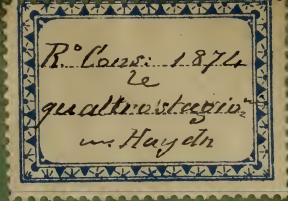 R.º Cons: 1874
le
quattro stagio.ⁿⁱ
Haydn